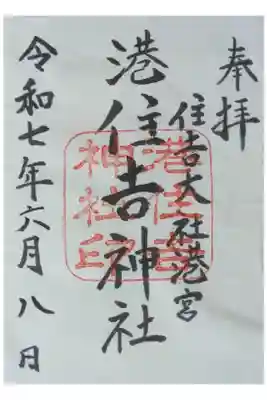 奉拝
住吉大社港宮
港住吉神社
令和七年六月八日
港住吉
神社印